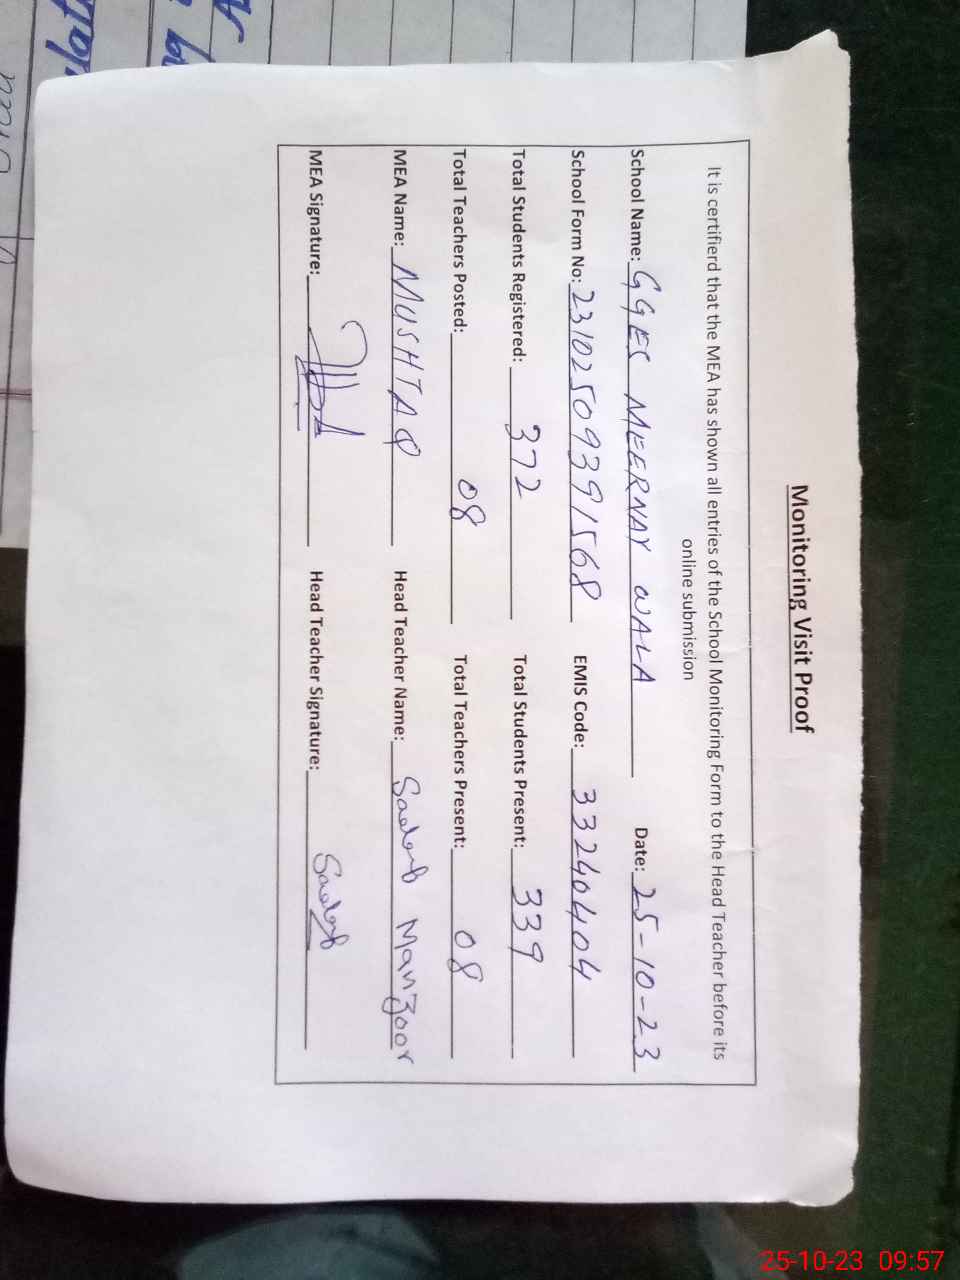 Monitoring Visit Proof
It is certifierd that the MEA has shown all entries of the School Monitoring Form to the Head Teacher before its
online submission
School Name: GGES MEERNAY WALA Date: 25-10-23
School Form No: 23102509391568 EMIS Code: 33240404
Total Students Registered: 372 Total Students Present: 339
Total Teachers Posted: 08 Total Teachers Present: 08
MEA Name: MUSHTAQ Head Teacher Name: Sadaf Manzoor
MEA Signature: Head Teacher Signature: Sadaf
25-10-23 09:57